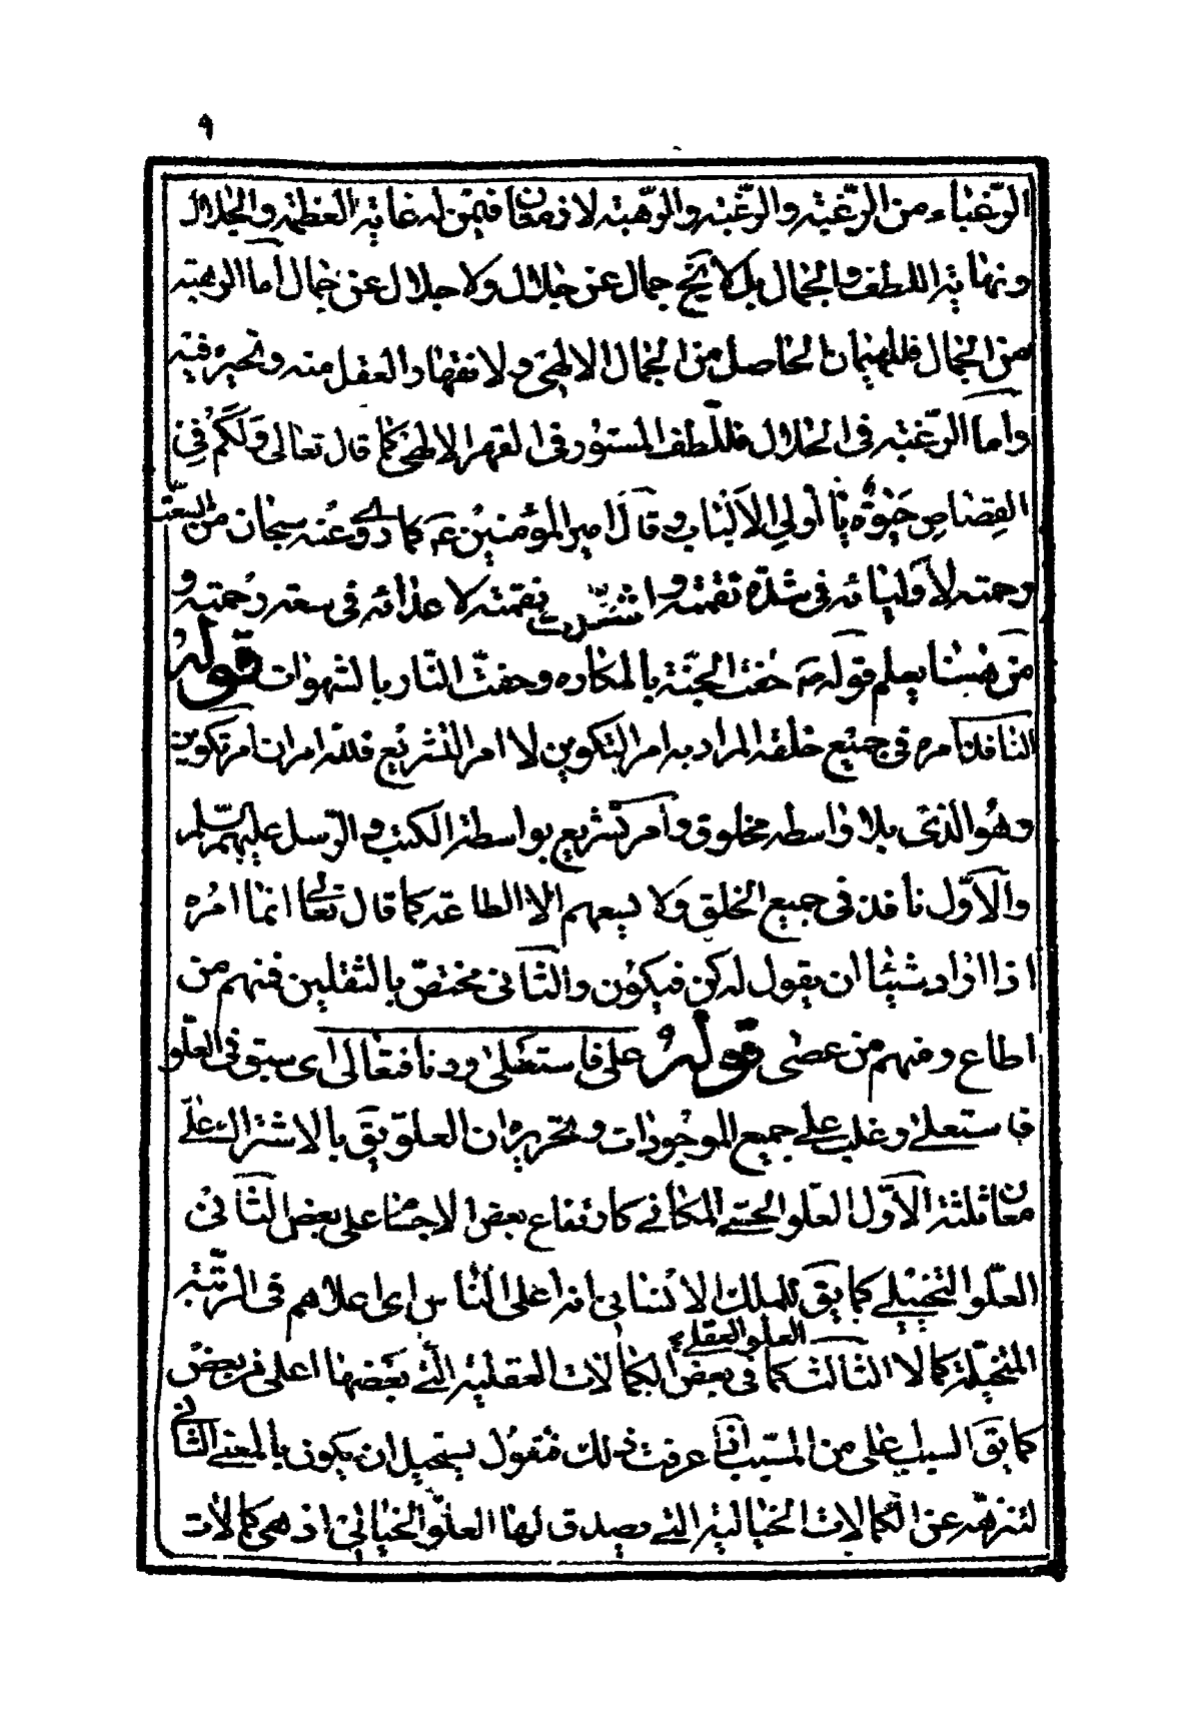 ٩
الرّغباء من الرّغبته والرّغبه والرّهبته لازمان فيمن له غاية العظمة والجلال
ونهاية اللطف والجمال بل لا يخ جمال عن جلال ولا جلال عن جمال أما الرهبته
من الجمال فللهيمان الحاصل من الجمال الالهى ولانقهار العقل منه وتحيره فيه
وأما الرّغبته فى الجلال فللّطف المستور فى القهر الالهى كما قال تعالى ولكم فى
القصاص حيوة يا أولى الألباب وقال امير المؤمنين ع كما روى عنه سبحان من اتّسعت
رحمته لأوليائه فى شدّة نقمته واشتدّت نقمته لاعدائه فى سعة رحمته و
من ههنا يعلم قوله ص حفت الجنّة بالمكاره وحفت النّار بالشهوات قوله
النافذ امره فى جميع خلقه المراد به امر التكوين لا امر التشريع فللّه امران أمر تكوين
وهو الذى بلا واسطه مخلوق وأمر تشريع بواسطة الكتب والرّسل عليهم السّلم
والأوّل نافذ فى جميع الخلق ولا يسعهم الا الطاعة كما قال تعالى انما امره
اذا اراد شيئا ان يقول له كن فيكون والثانى مختصّ بالثقلين فمنهم من
اطاع ومنهم من عصى قوله على فاستعلى ودنا فتعالى اى سبق فى العلّو
فاستعلى وغلب على جميع الموجودات وتحريره ان العلوّ يق بالاشتراك على
معان ثلثة الأوّل العلّو الحسّى المكانى كارتفاع بعض الاجسام على بعض الثانى
العلّو التخيلى كما يق للملك الانسانى انه اعلى النّاس اى اعلاهم فى الرّتبة
المتخيّلة كمالا الثالث العلو العقلى كما فى بعض الكمالات العقليّة الّتى بعضها اعلى من بعض
كما يق السبب اعلى من المسبّب اذا عرفت ذلك فنقول يستحيل ان يكون بالمعنى الثانى
لتنزهه عن الكمالات الخياليّة التى يصدق لها العلوّ الخيالى اذ هى كمالات